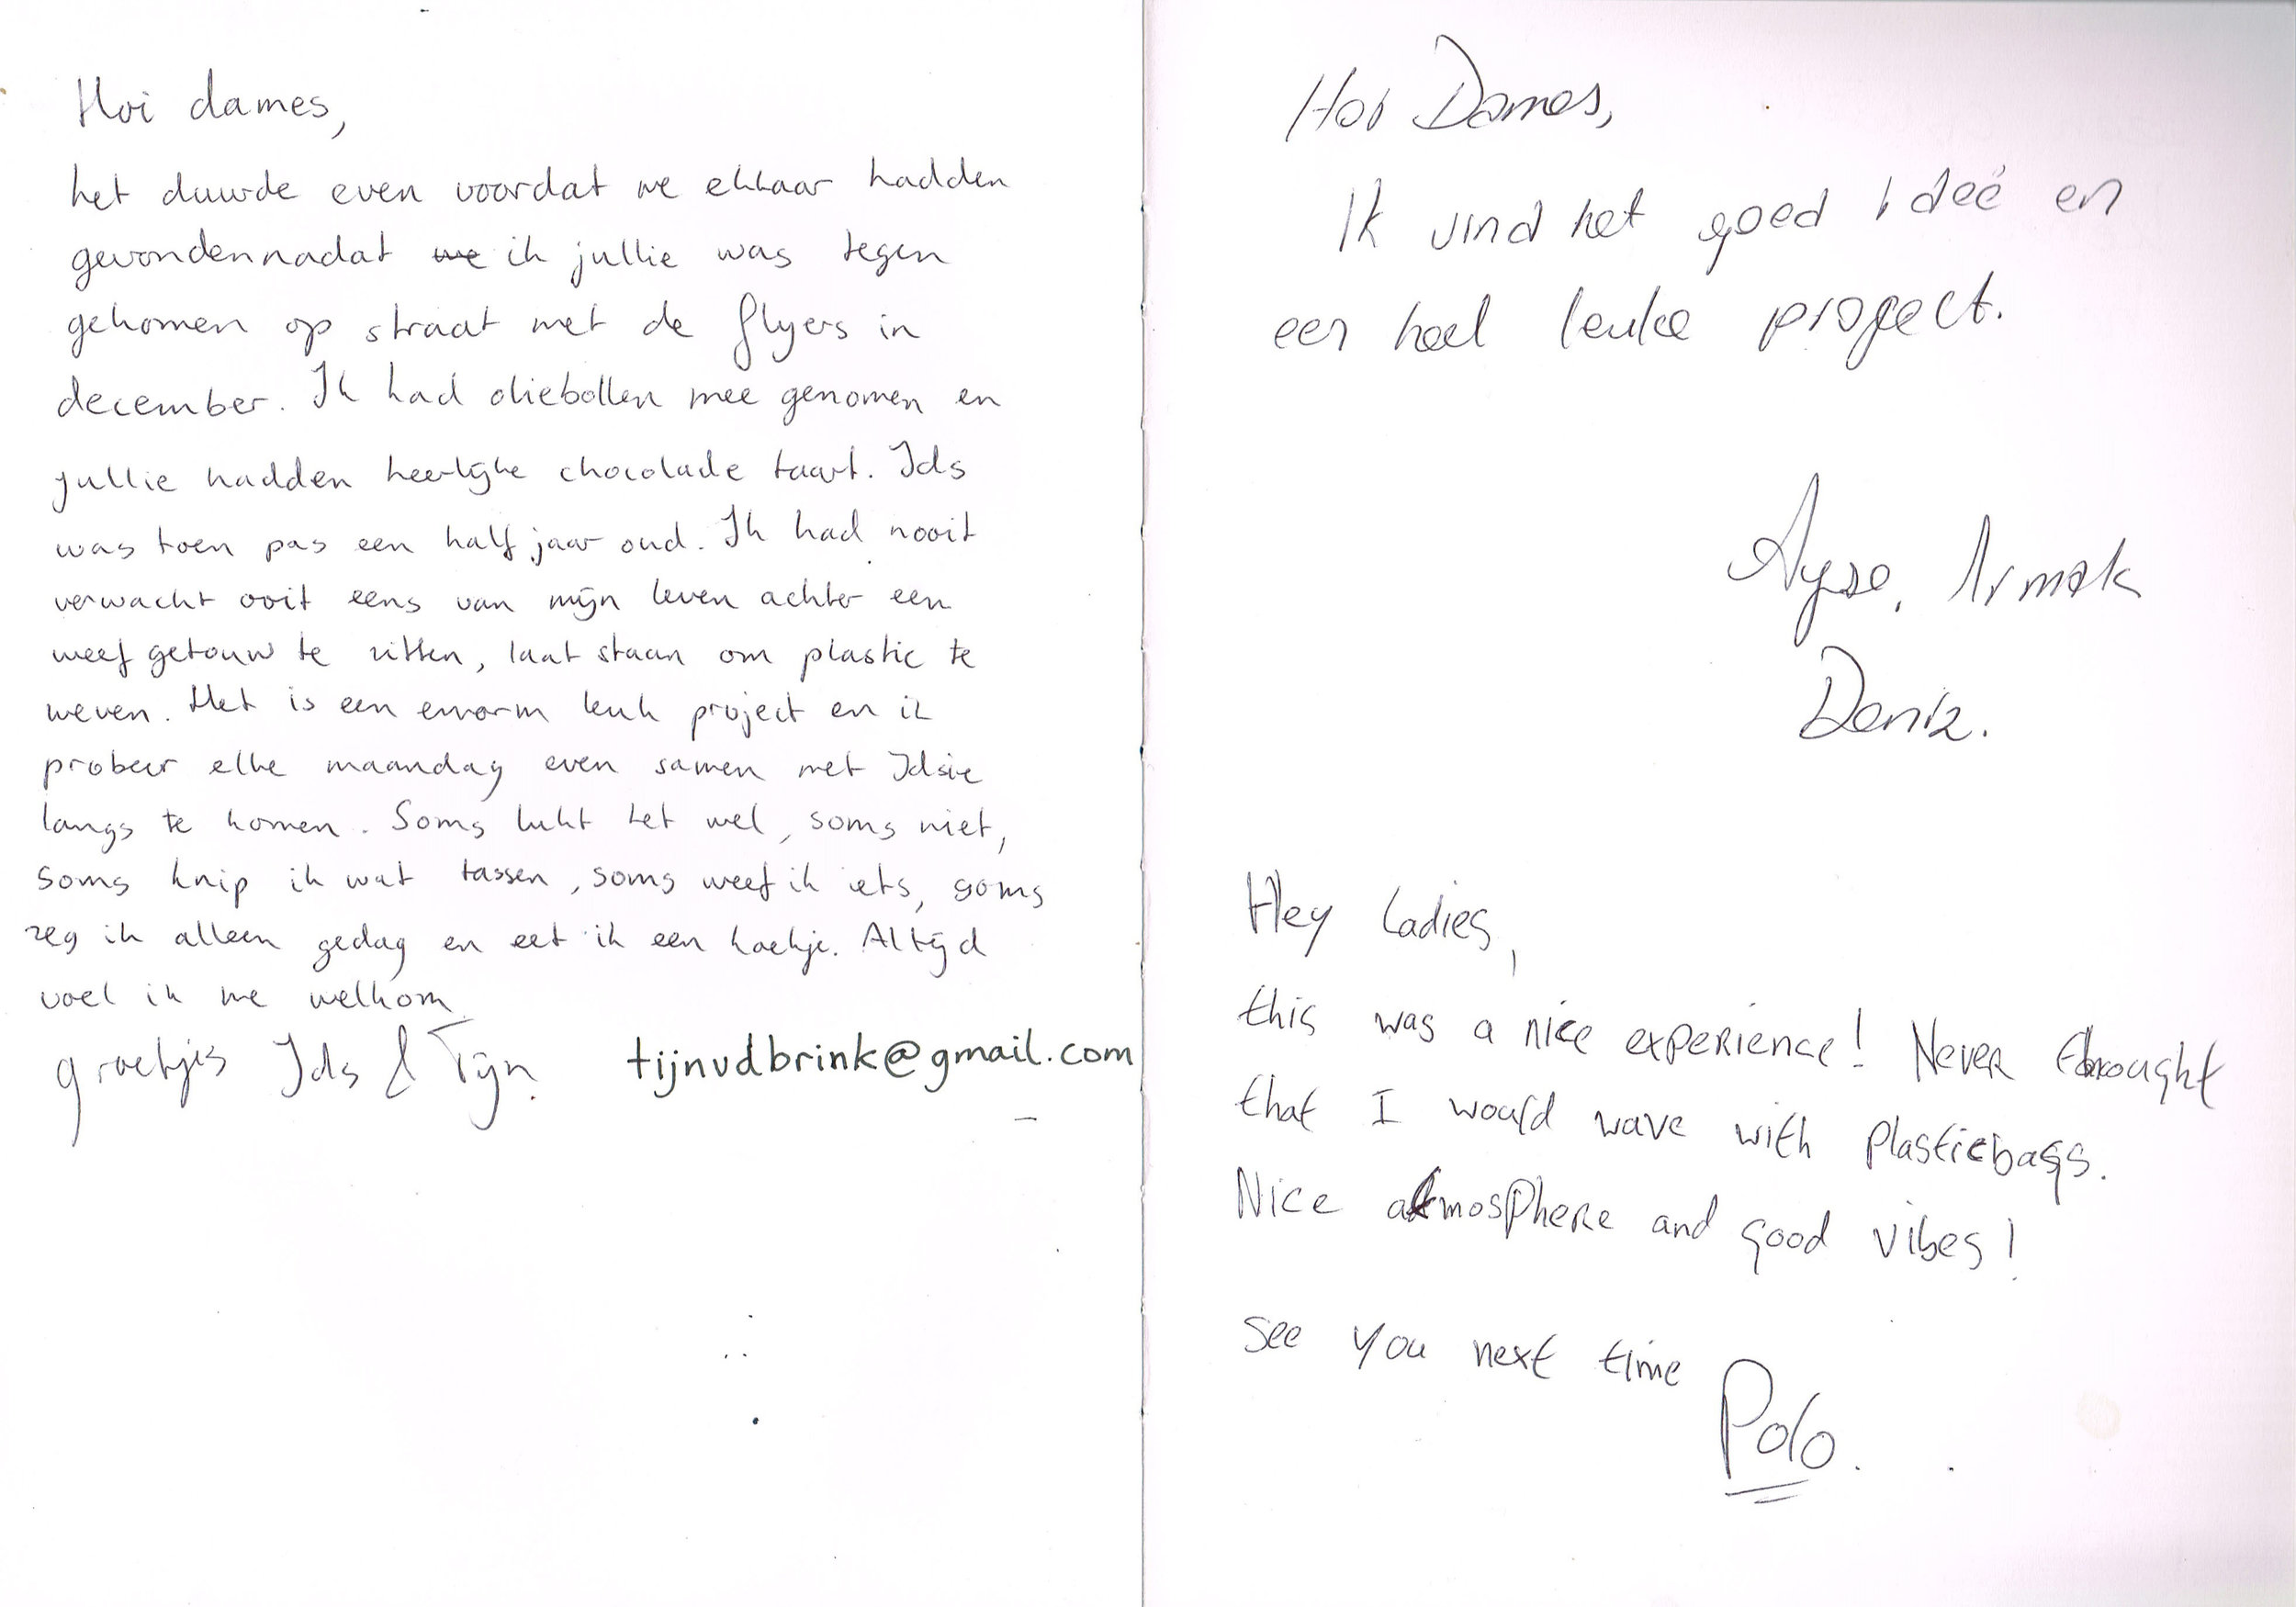 Hoi dames,
het duurde even voordat we elkaar hadden
gevonden nadat we ik jullie was tegen
gekomen op straat met de flyers in
december. Ik had oliebollen mee genomen en
jullie hadden heerlijke chocolade taart. Ids
was toen pas een half jaar oud. Ik had nooit
verwacht ooit eens van mijn leven achter een
weef getouw te zitten, laat staan om plastic te
weven. Het is een enorm leuk project en ik
probeer elke maandag even samen met Idsie
langs te komen. Soms lukt het wel, soms niet,
soms knip ik wat tassen, soms weef ik iets, soms
zeg ik alleen gedag en eet ik een koekje. Altijd
voel ik me welkom
groetjes Ids & Tijn. tijnvdbrink@gmail.com
Hoi Dames,
Ik vind het goed ideé en
een heel leuke progect.
Ayse, Irmak
Deniz.
Hey Ladies,
this was a nice experience! Never thought
that I would wave with plasticbags.
Nice atmosphere and good vibes!
see you next time
Polo.